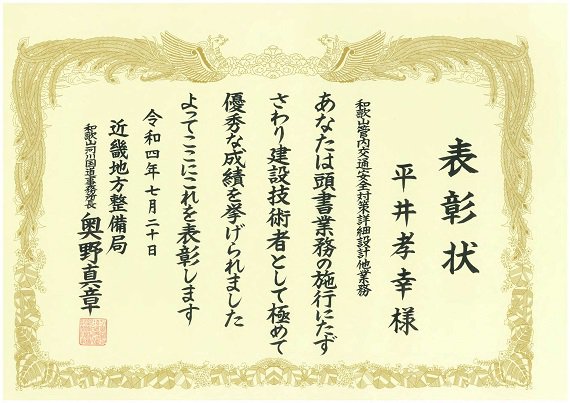 表彰状
平井孝幸様
和歌山管内交通安全対策詳細設計他業務
あなたは頭書業務の施行にたず
さわり建設技術者として極めて
優秀な成績を挙げられました
よってここにこれを表彰します
令和四年七月二十日
近畿地方整備局
和歌山河川国道事務所長 奥野真章